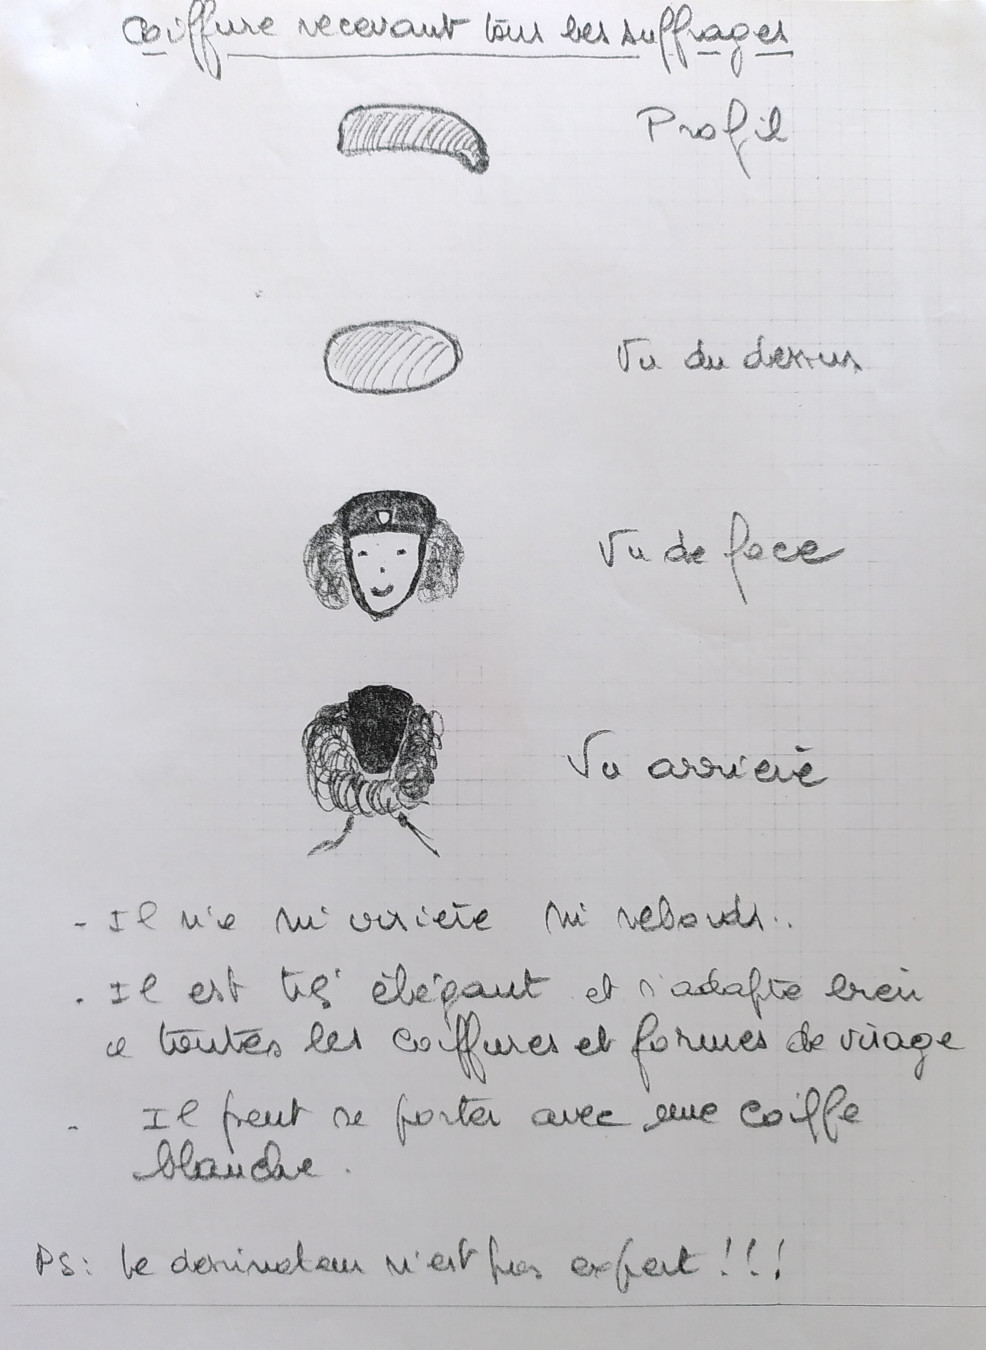 Coiffure recevant tous les suffrages
Profil
Vu du dessus
Vu de face
Vu arrière
- Il n'a ni arriere ni rebords..
- Il est très élégant et s'adapte bien
a toutes les coiffures et formes de visage
- Il peut se porter avec une coiffe
blanche.
PS: Le dessinateur n'est pas expert!!!